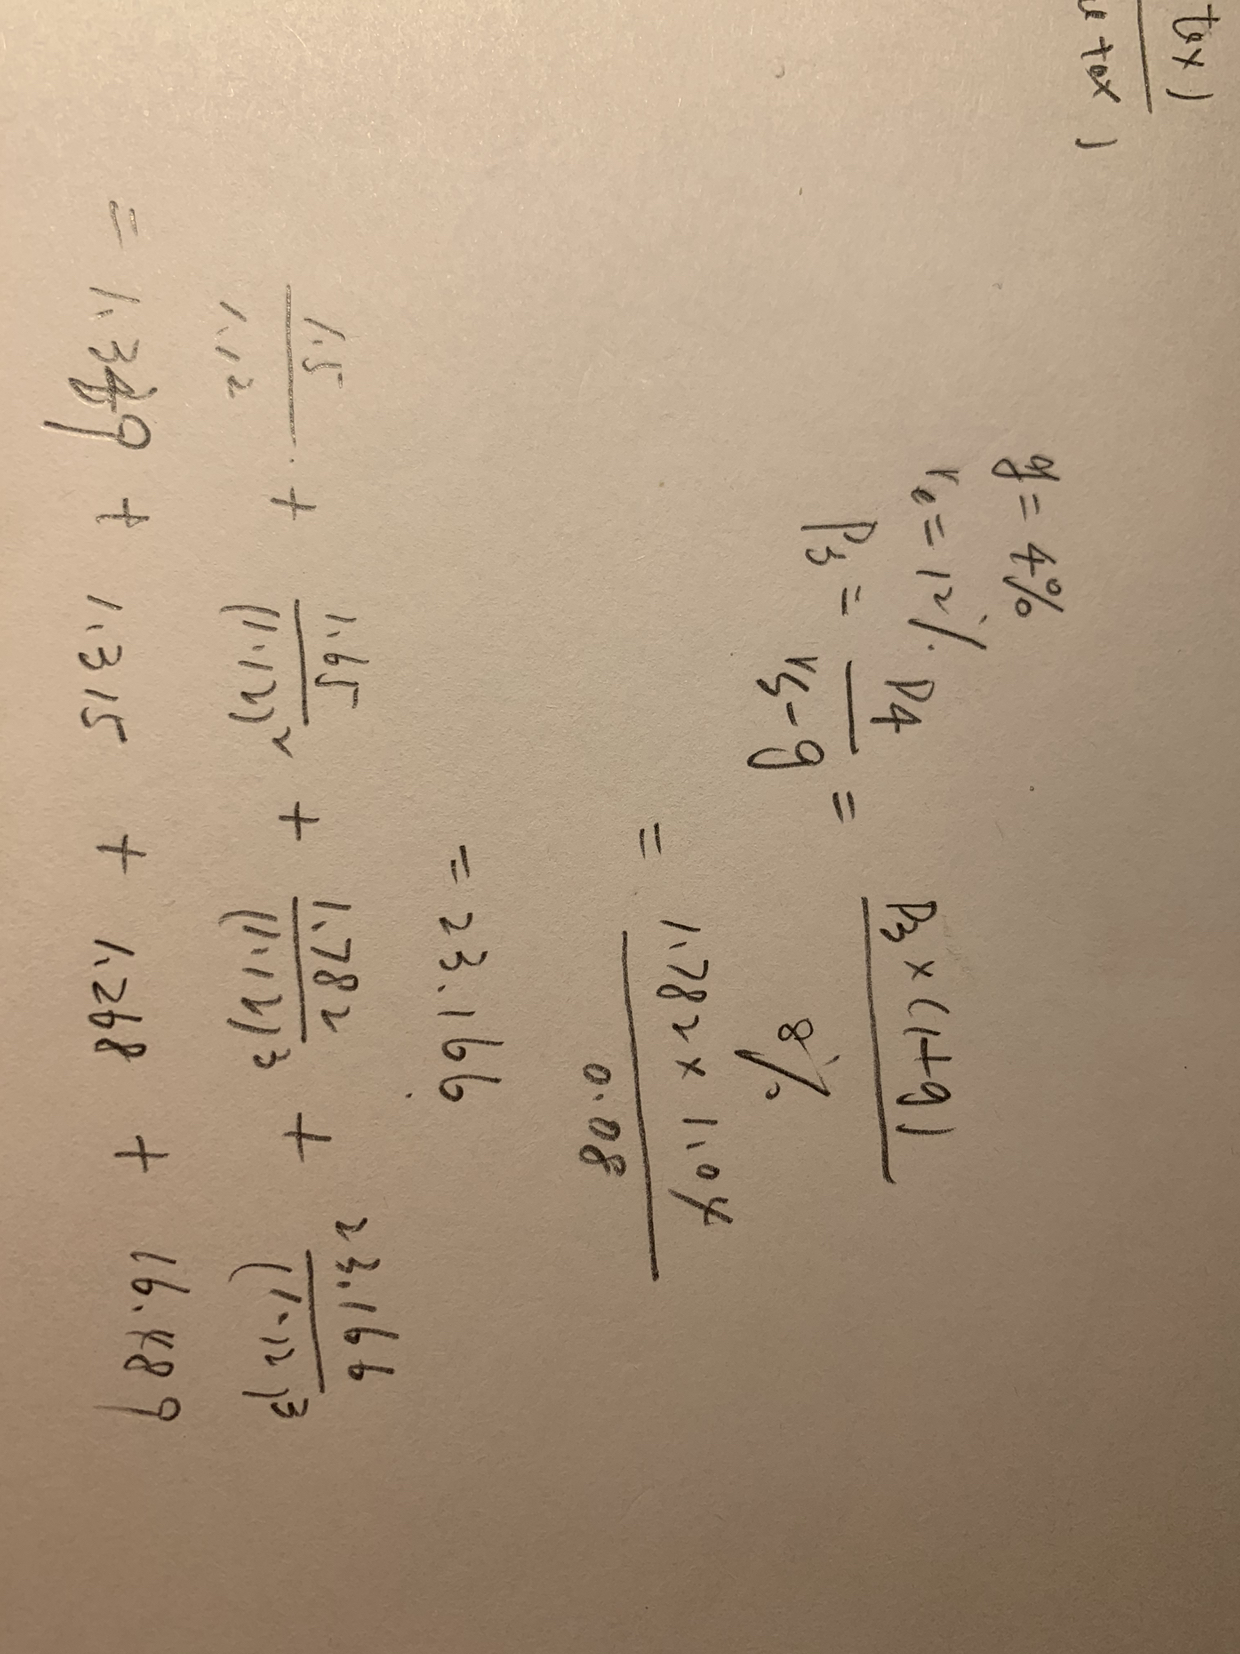 tax)
u tax)
g = 4%
r₀ = 12%
P₃ = D4 / rs - g = D3 × (1+g) / 8%
= 1.782 × 1.04 / 0.08
= 23.166
1.5 / 1.12 + 1.65 / (1.12)² + 1.782 / (1.12)³ + 23.166 / (1.12)³
= 1.339 + 1.315 + 1.268 + 16.489